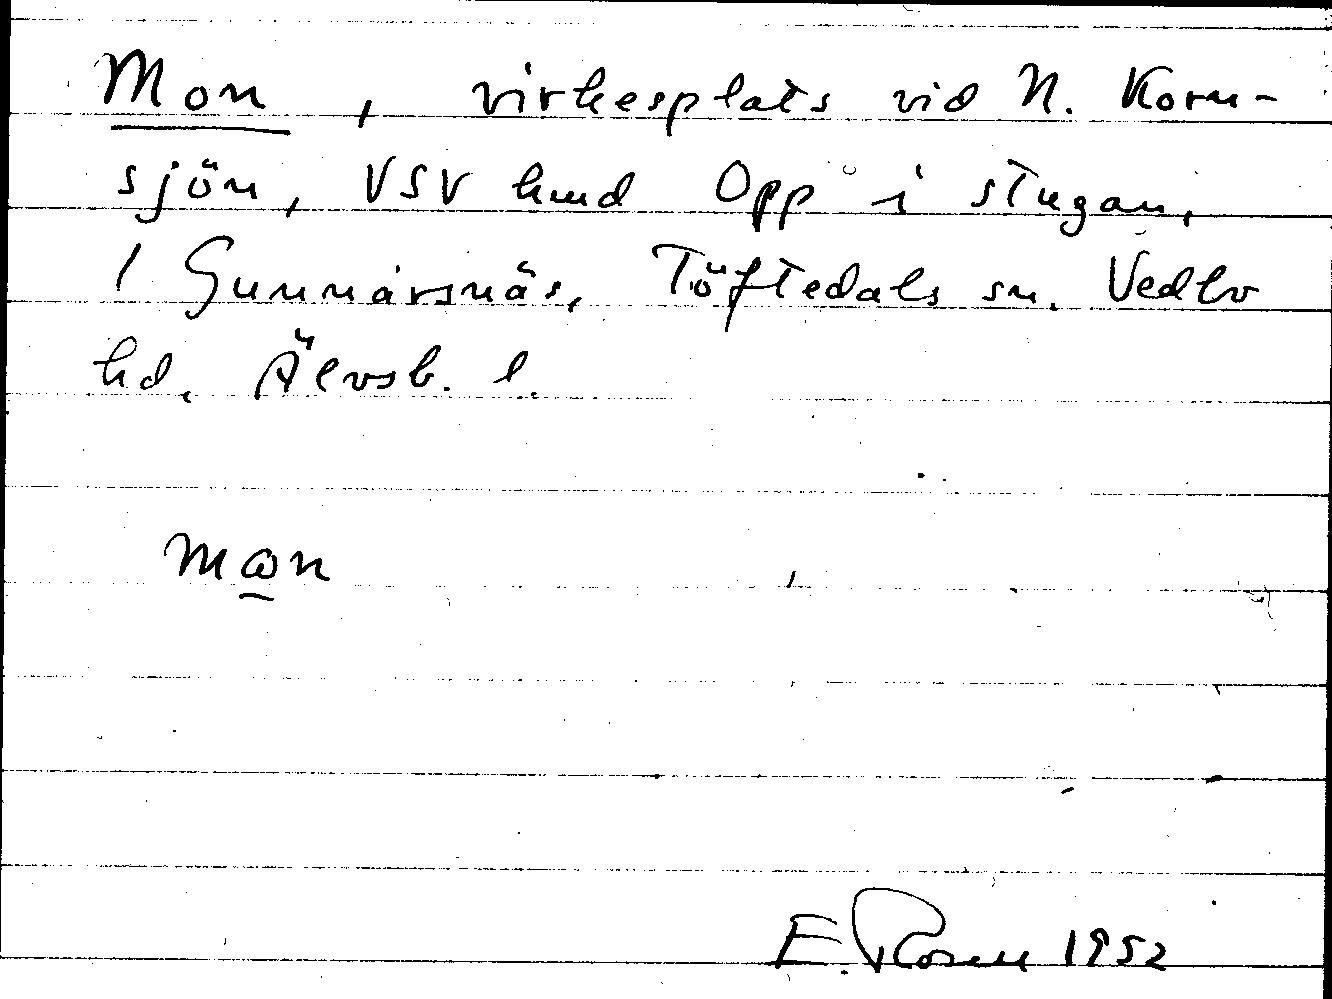 Mon, virkesplats vid N. Korn-
sjön, VSV hmd Opp i stugan,
1 Gunnarsnäs, Töftedals sn. Vedbo
hd. Älvsb. l.
man
E. Rosell 1952